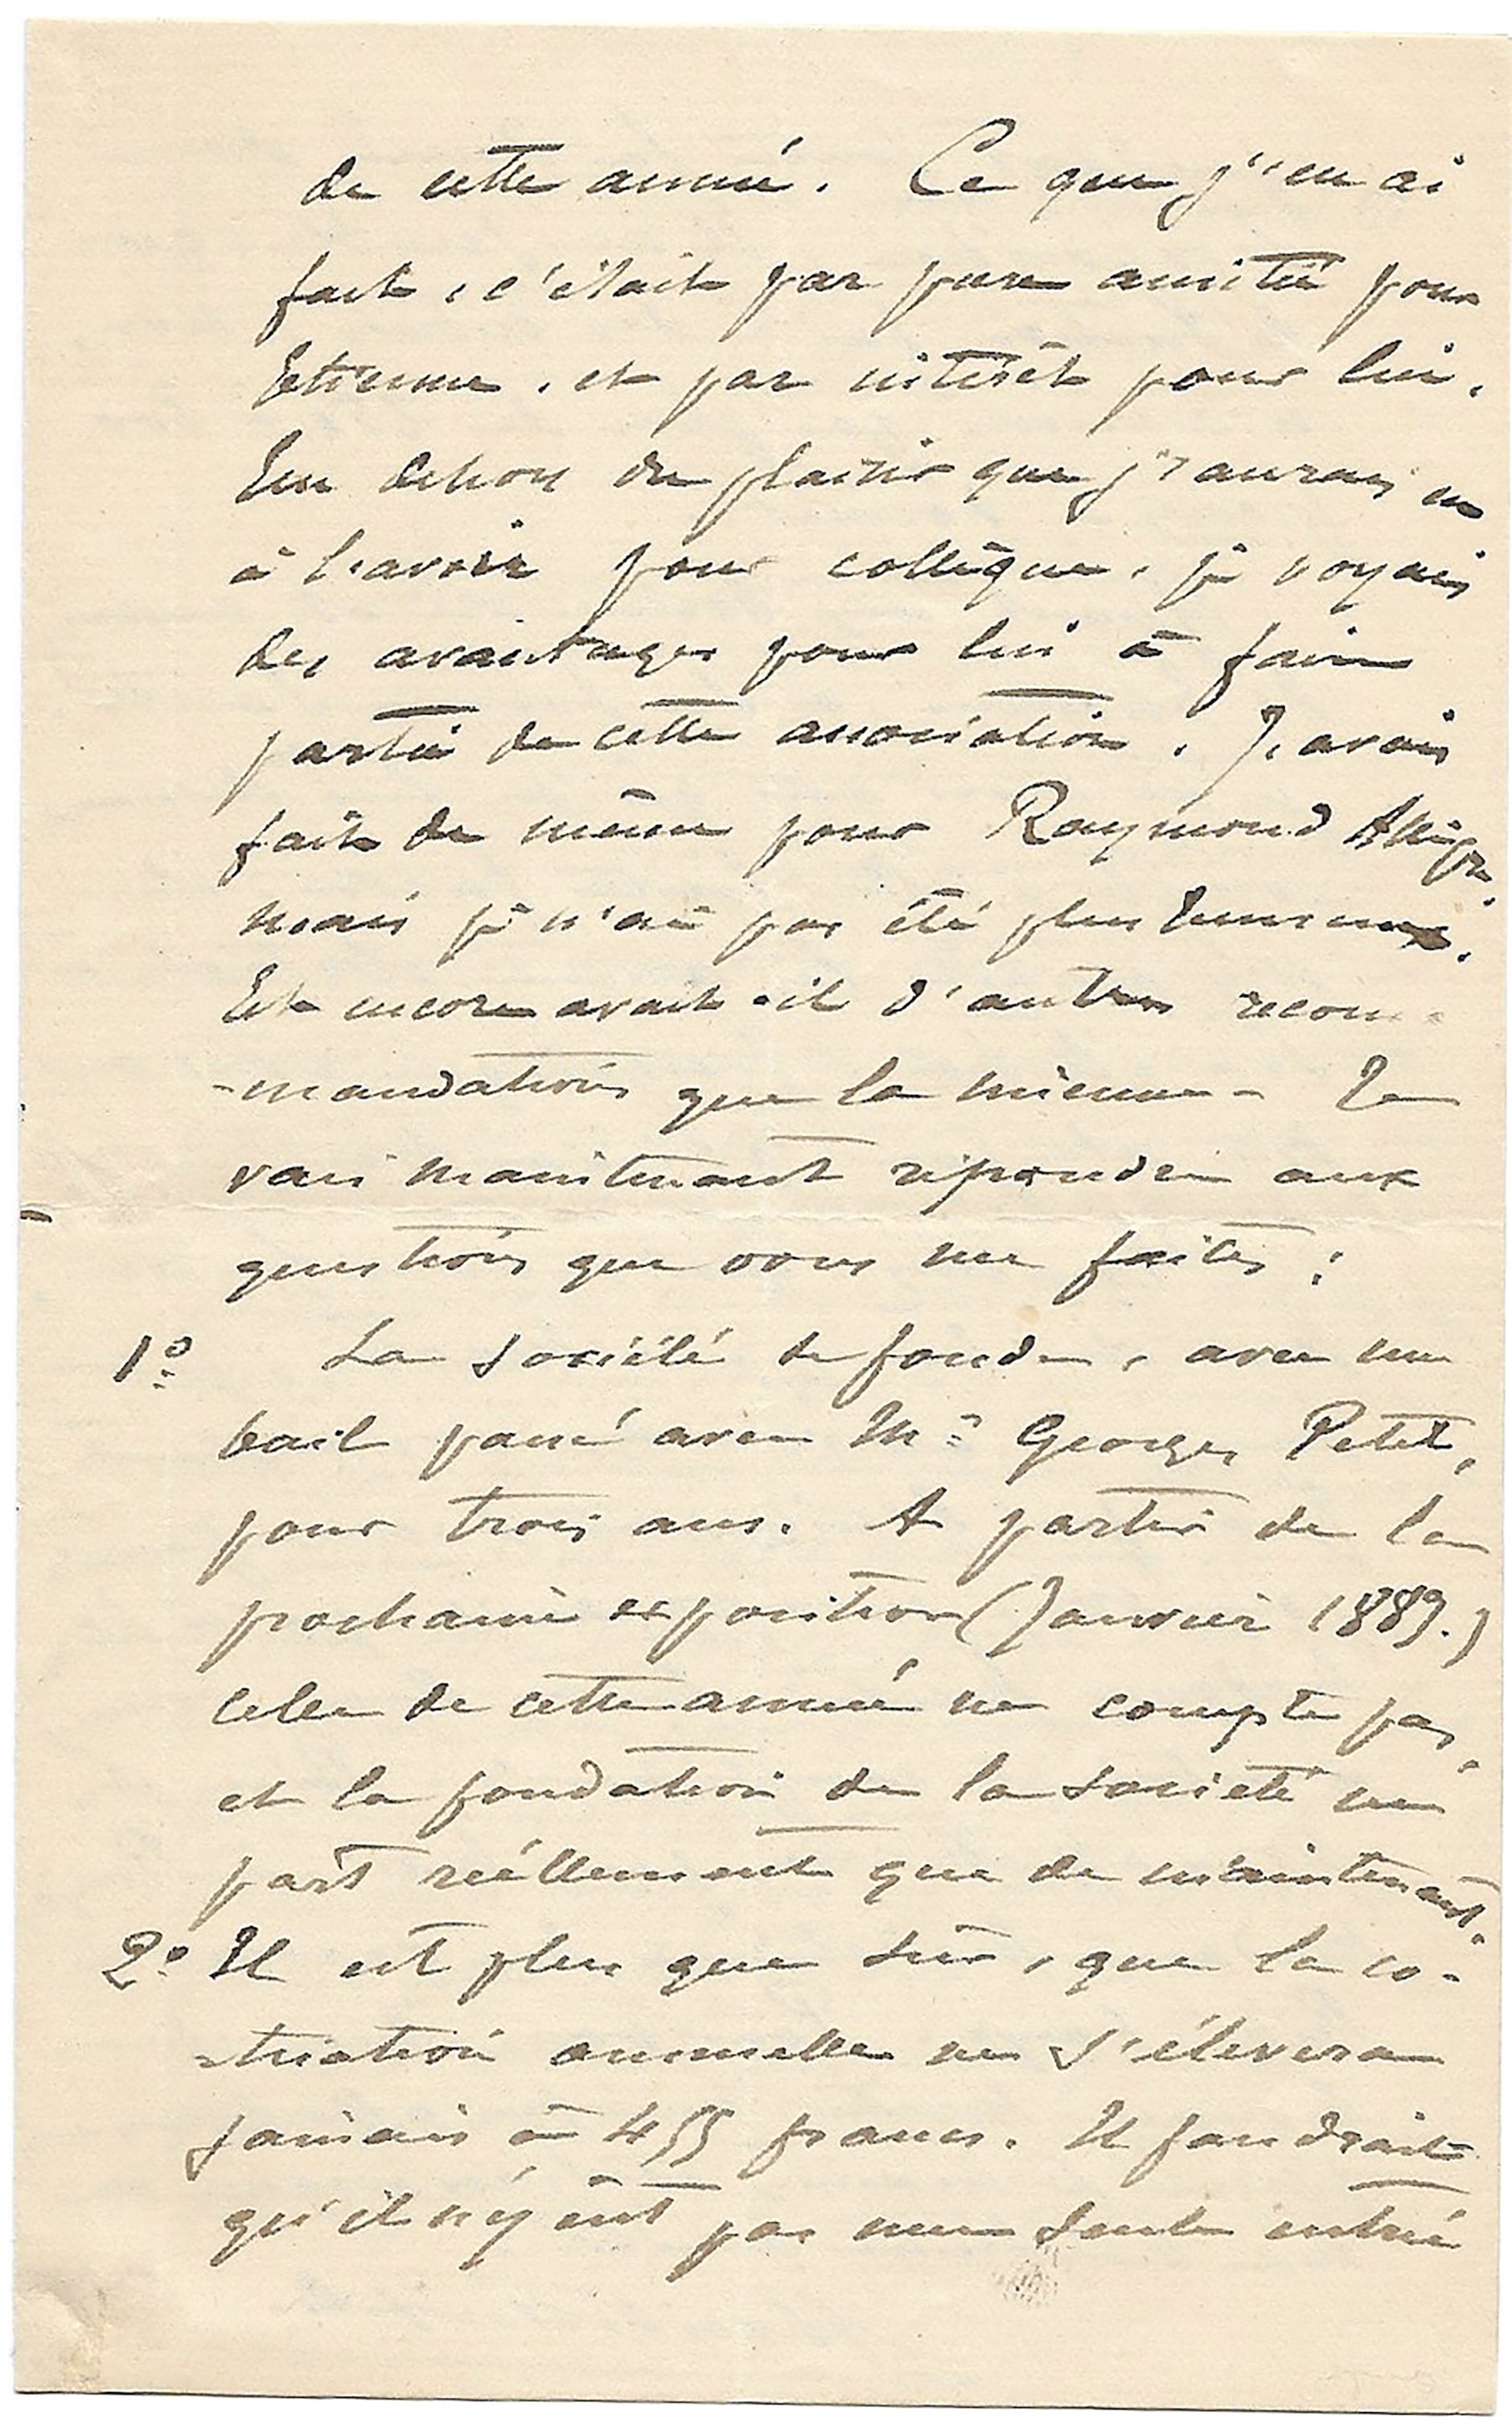 de cette année. Ce que j'en ai
fait, c'était par pure amitié pour
Etienne, et par intérêt pour lui.
En dehors du plaisir que j'aurais eu
à l'avoir pour collègue, je voyais
des avantages pour lui à faire
partie de cette association. J'avais
fait de même pour Raymond
mais je n'ai pas été plus heureux.
Et encore avait-il d'autres recom-
-mandations que la mienne - Je
vais maintenant répondre aux
questions que vous me faites :
1° La Société se fonde, avec un
bail passé avec Mr Georges Petit,
pour trois ans. A partir de la
prochaine exposition (Janvier 1889.)
Celle de cette année ne compte pas,
et la fondation de la Société ne
part réellement que de maintenant.
2° Il est plus que sûr, que la co-
-tisation annuelle ne s'élevera
jamais à 455 francs. Il faudrait
qu'il n'y eût pas une seule entrée